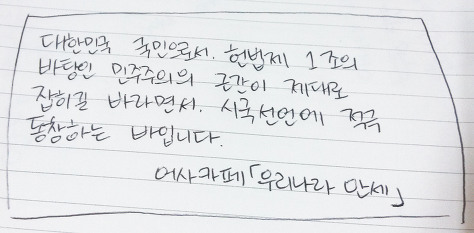 대한민국 국민으로서. 헌법제 1조의
바탕인 민주주의의 근간이 제대로
잡히길 바라면서. 시국선언에 적극
동창하는 바입니다.
어사카페「우리나라 만세」